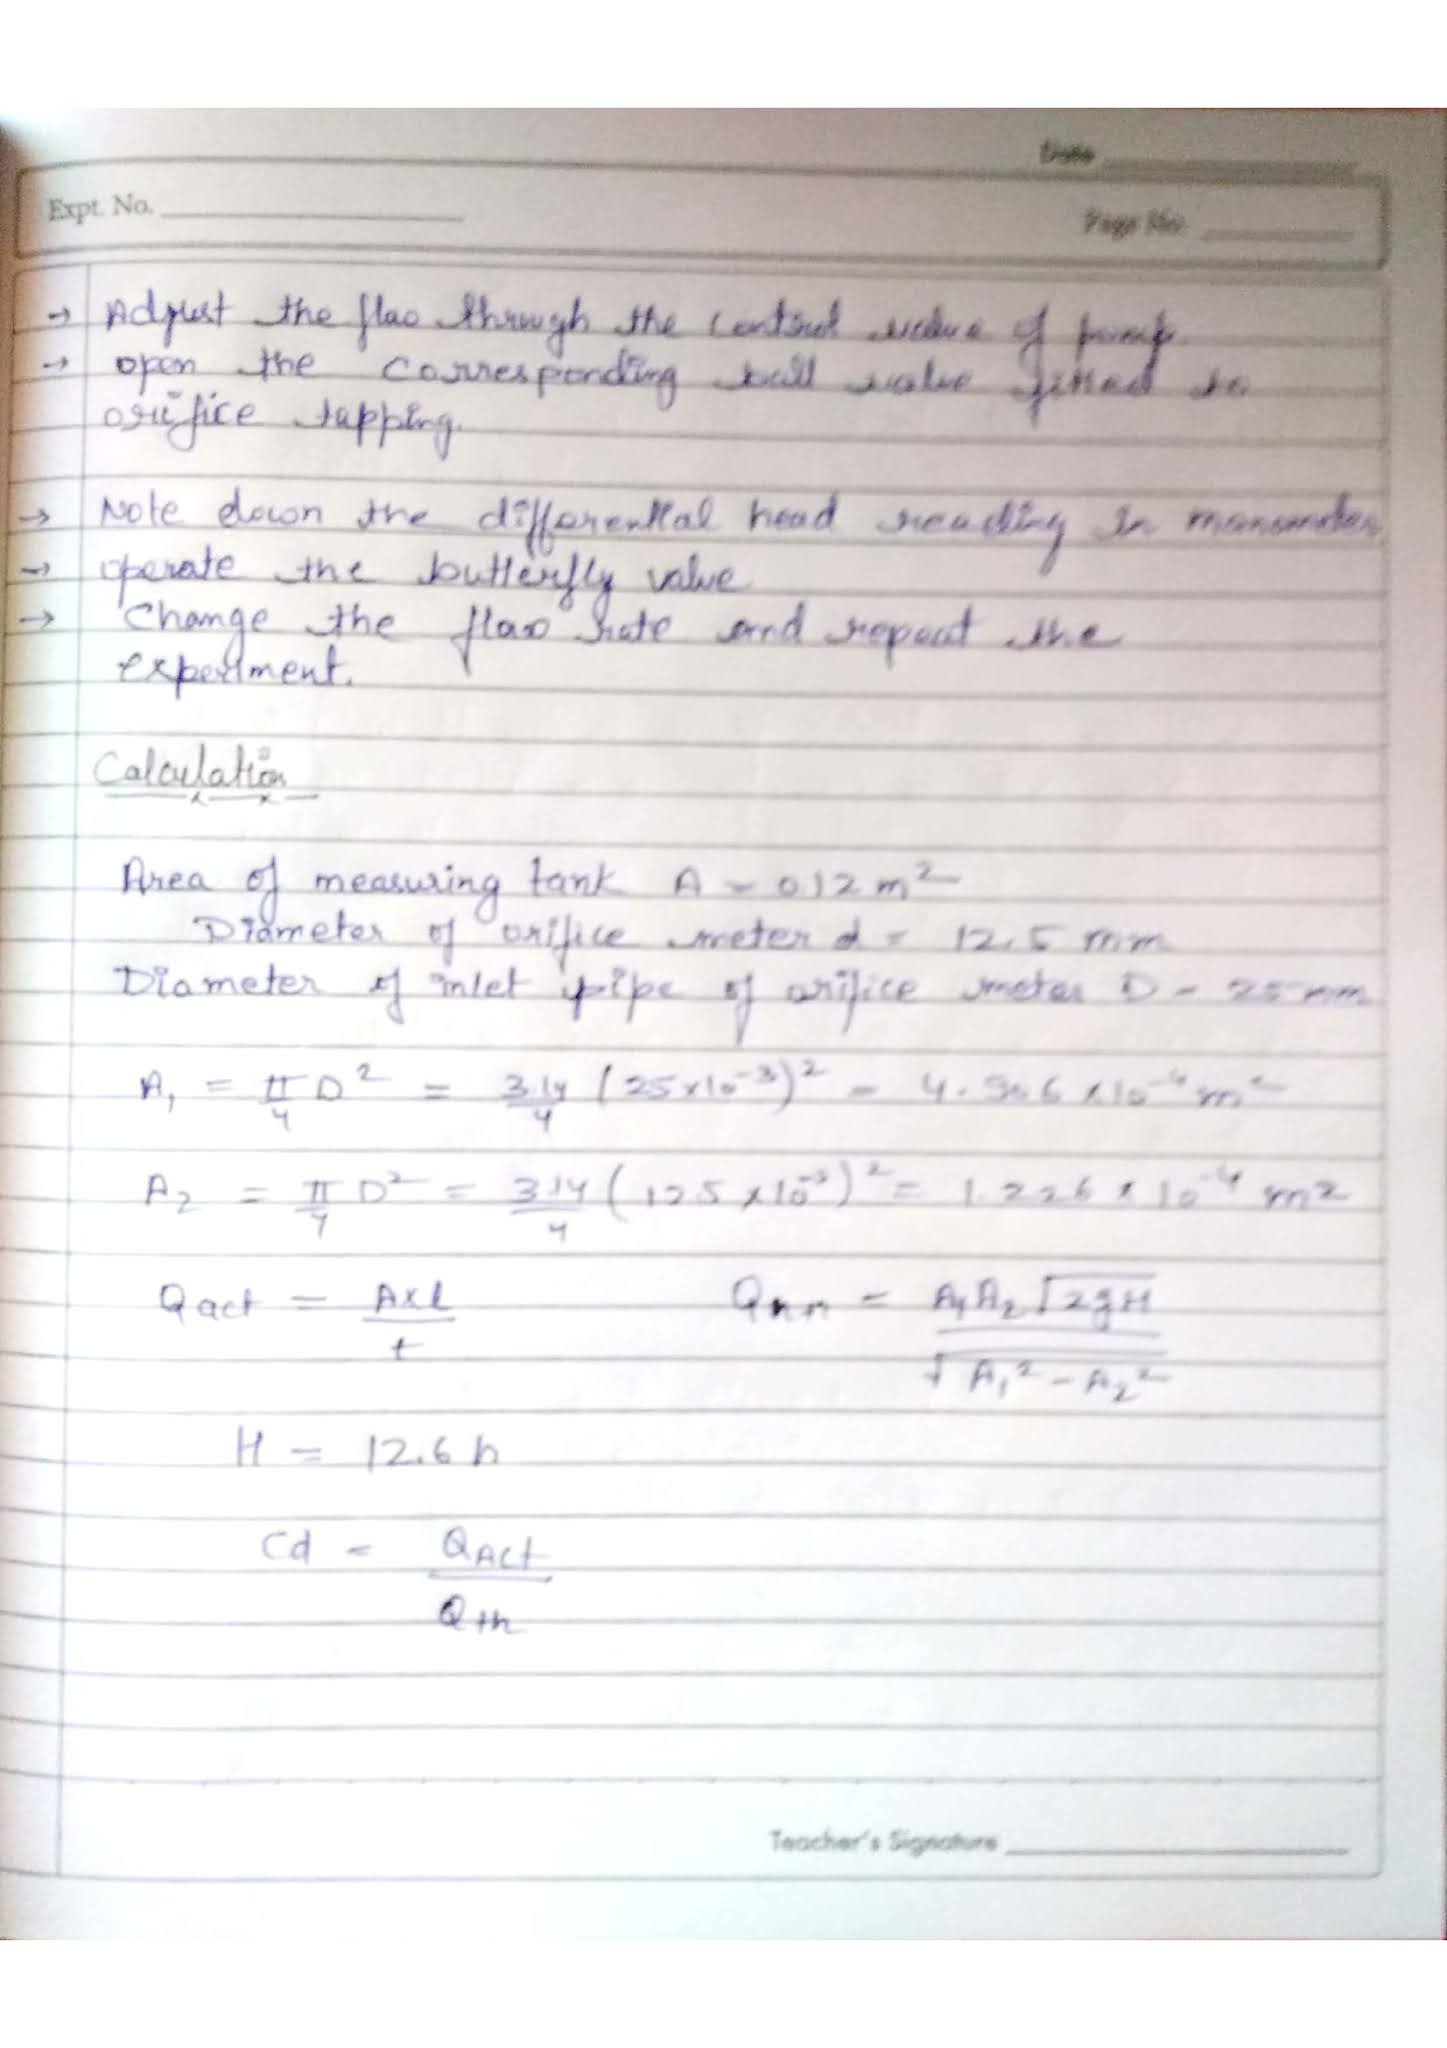 Date
Expt. No.
Page No.
→ Adjust the flao through the control valve of pump.
→ open the corresponding ball valve fitted to
orifice tapping.
→ Note down the differential head reading in manometer
→ operate the butterfly valve
→ Change the flao rate and repeat the
experiment.
Calculation
Area of measuring tank A = 0.12 m²
Diameter of orifice meter d = 12.5 mm
Diameter of inlet pipe of orifice meter D = 25 mm
A₁ = π/4 D² = 3.14/4 (25×10⁻³)² = 4.906 × 10⁻⁴ m²
A₂ = π/4 D² = 3.14/4 (12.5 × 10⁻³)² = 1.226 × 10⁻⁴ m²
Qact = A×L / t    = A₁A₂ √2gH / √A₁² - A₂²
H = 12.6 h
Cd = QAct / Qth
Teacher's Signature